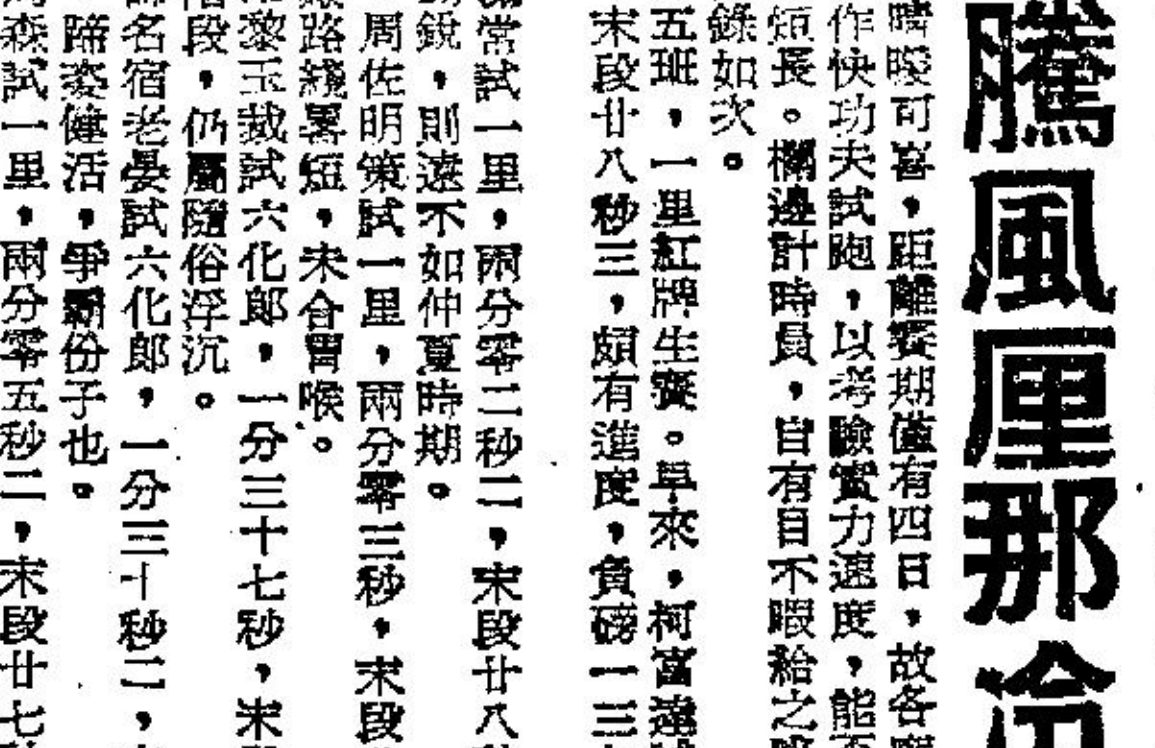 騰風厘那冷
晴暖可喜，距離賽期僅有四日，故各
作快功夫試跑，以考驗實力速度，能否
短長。欄邊計時員，自有目不暇給之
錄如次。
五班，一里紅牌生賽。早來，柯富達試
末段廿八秒三，頗有進度，負磅一三
常試一里，兩分零二秒二，末段廿八秒
銳，則遠不如仲夏時期。
周佐明策試一里，兩分零三秒，末段
路綫畧短，未合胃喉。
黎玉裁試六化郎，一分三十七秒，末
段，仍屬隨俗浮沉。
名宿老晏試六化郎，一分三十秒二，
蹄姿健活，爭霸份子也。
森試一里，兩分零五秒二，末段廿七秒